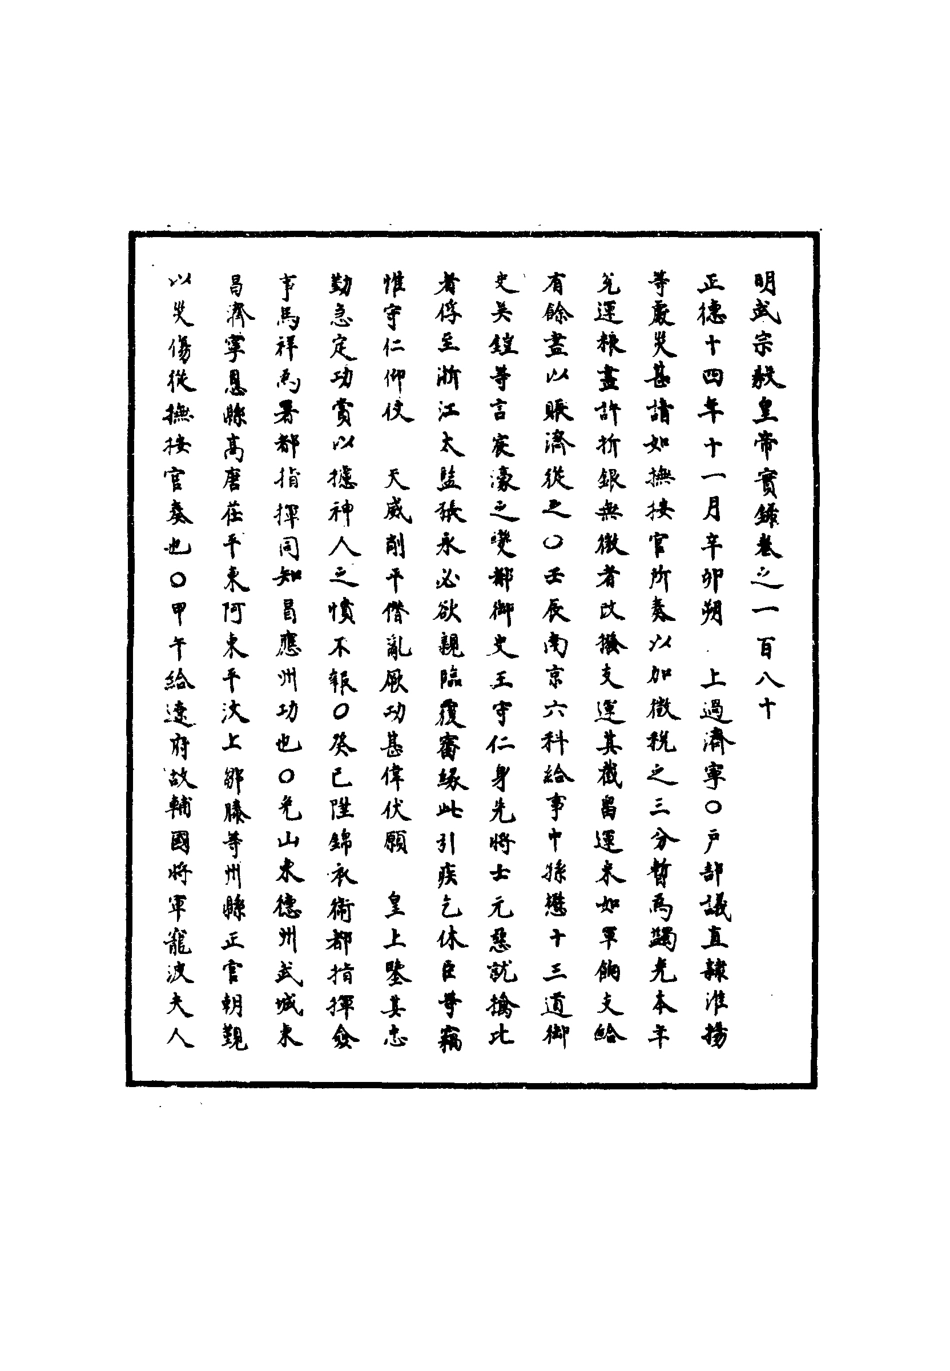 明武宗毅皇帝實錄卷之一百八十
正德十四年十一月辛卯朔　上過濟寧○戶部議直隸淮揚
等處災甚請如撫按官所奏以加徵税之三分暫為蠲免本年
兌運粮盡許折銀無徵者改撥支運其截留運米如軍餉支給
有餘盡以賑濟從之○壬辰南京六科給事中孫懋十三道御
史吴鎧等言宸濠之變都御史王守仁身先將士元惡就擒比
者俘至浙江太監張永必欲親臨覆審緣此引疾乞休臣等竊
惟守仁仰仗　天威削平僭亂厥功甚偉伏願　皇上鑒其忠
勤急定功賞以攄神人之憤不報○癸巳陞錦衣衛都指揮僉
事馬祥為署都指揮同知冒應州功也○免山東德州武城東
昌濟寧恩縣高唐茌平東阿東平汶上鄒滕等州縣正官朝覲
以災傷從撫按官奏也○甲午給遼府故輔國將軍寵波夫人